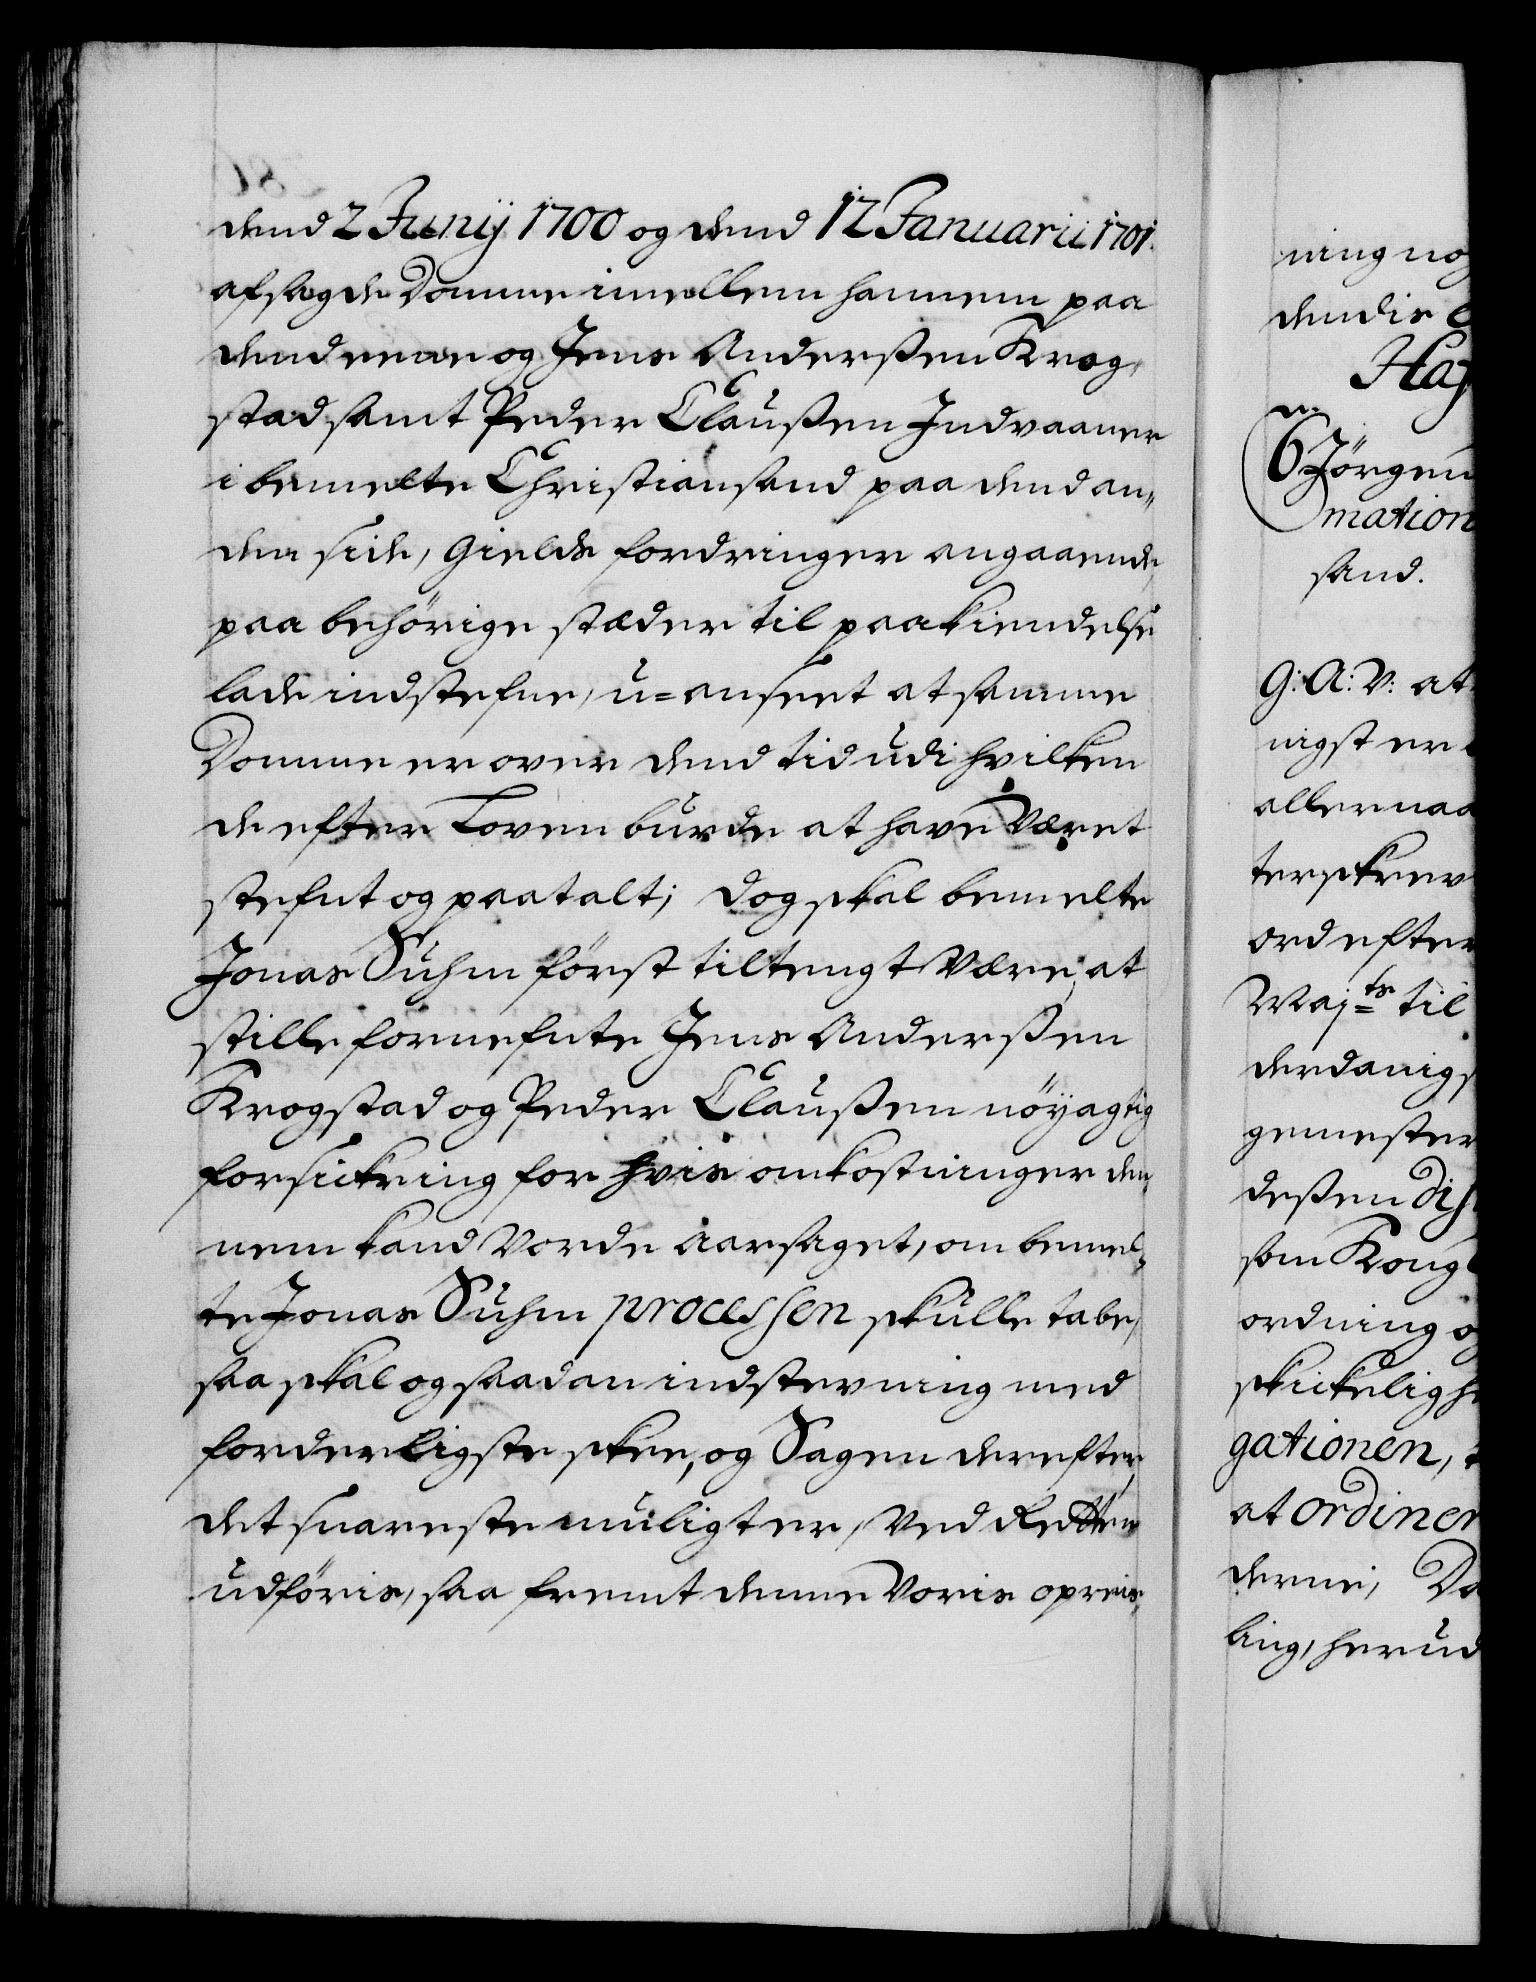 dend 2 Junij 1700 og dend 12 Januarii 1701.
afsagde Domme imellem hannem paa
dend eene og Jens Anderßen Krog,
stad samt Peder Claußen Indvaaner
i bemelte Christiansand paa dend an„
den side, Gields fordringer angaaende,
paa behörige stæder til paakiendelse
lade indstefne, u=anseet at samme
Domme er over dend tid udi hvilken
de efter Loven burde at have Været
stefnt og paatalt; dog skal bemelte
Jonas Suhm först tiltengt Være, at
stille fornefnte Jens Anderßen
Krogstad og Peder Claußen nöyagtig
forsickring for hvis omkostninger den,
nem kand Vorde aarsaget, om bemel,
te Jonas Suhm processen skulle tabe,
saa skal og saadan indstevning med
forderligste skee, og Sagen derefter
det snareste muligt er, Ved Retten
udföris, saa fremt denne Voris opreis,
ning nog
dendis
Haf
6 Jörgen
mation
sand.
G: A: V: at
nigst er
allernaa
terskrev
ord efter
Maj<sup>ts</sup> til
derdanigs
gemester
deßen Dis
som Kong
ordning og
skickeligh
gationen,
at ordiner
derne, Da
ling, herud